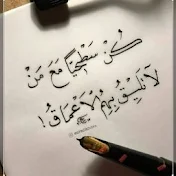 كُنْ سَطْحِيًّا مَعَ مَنْ
لَا تَلِيقُ بِهِمُ الْأَعْمَاقُ!